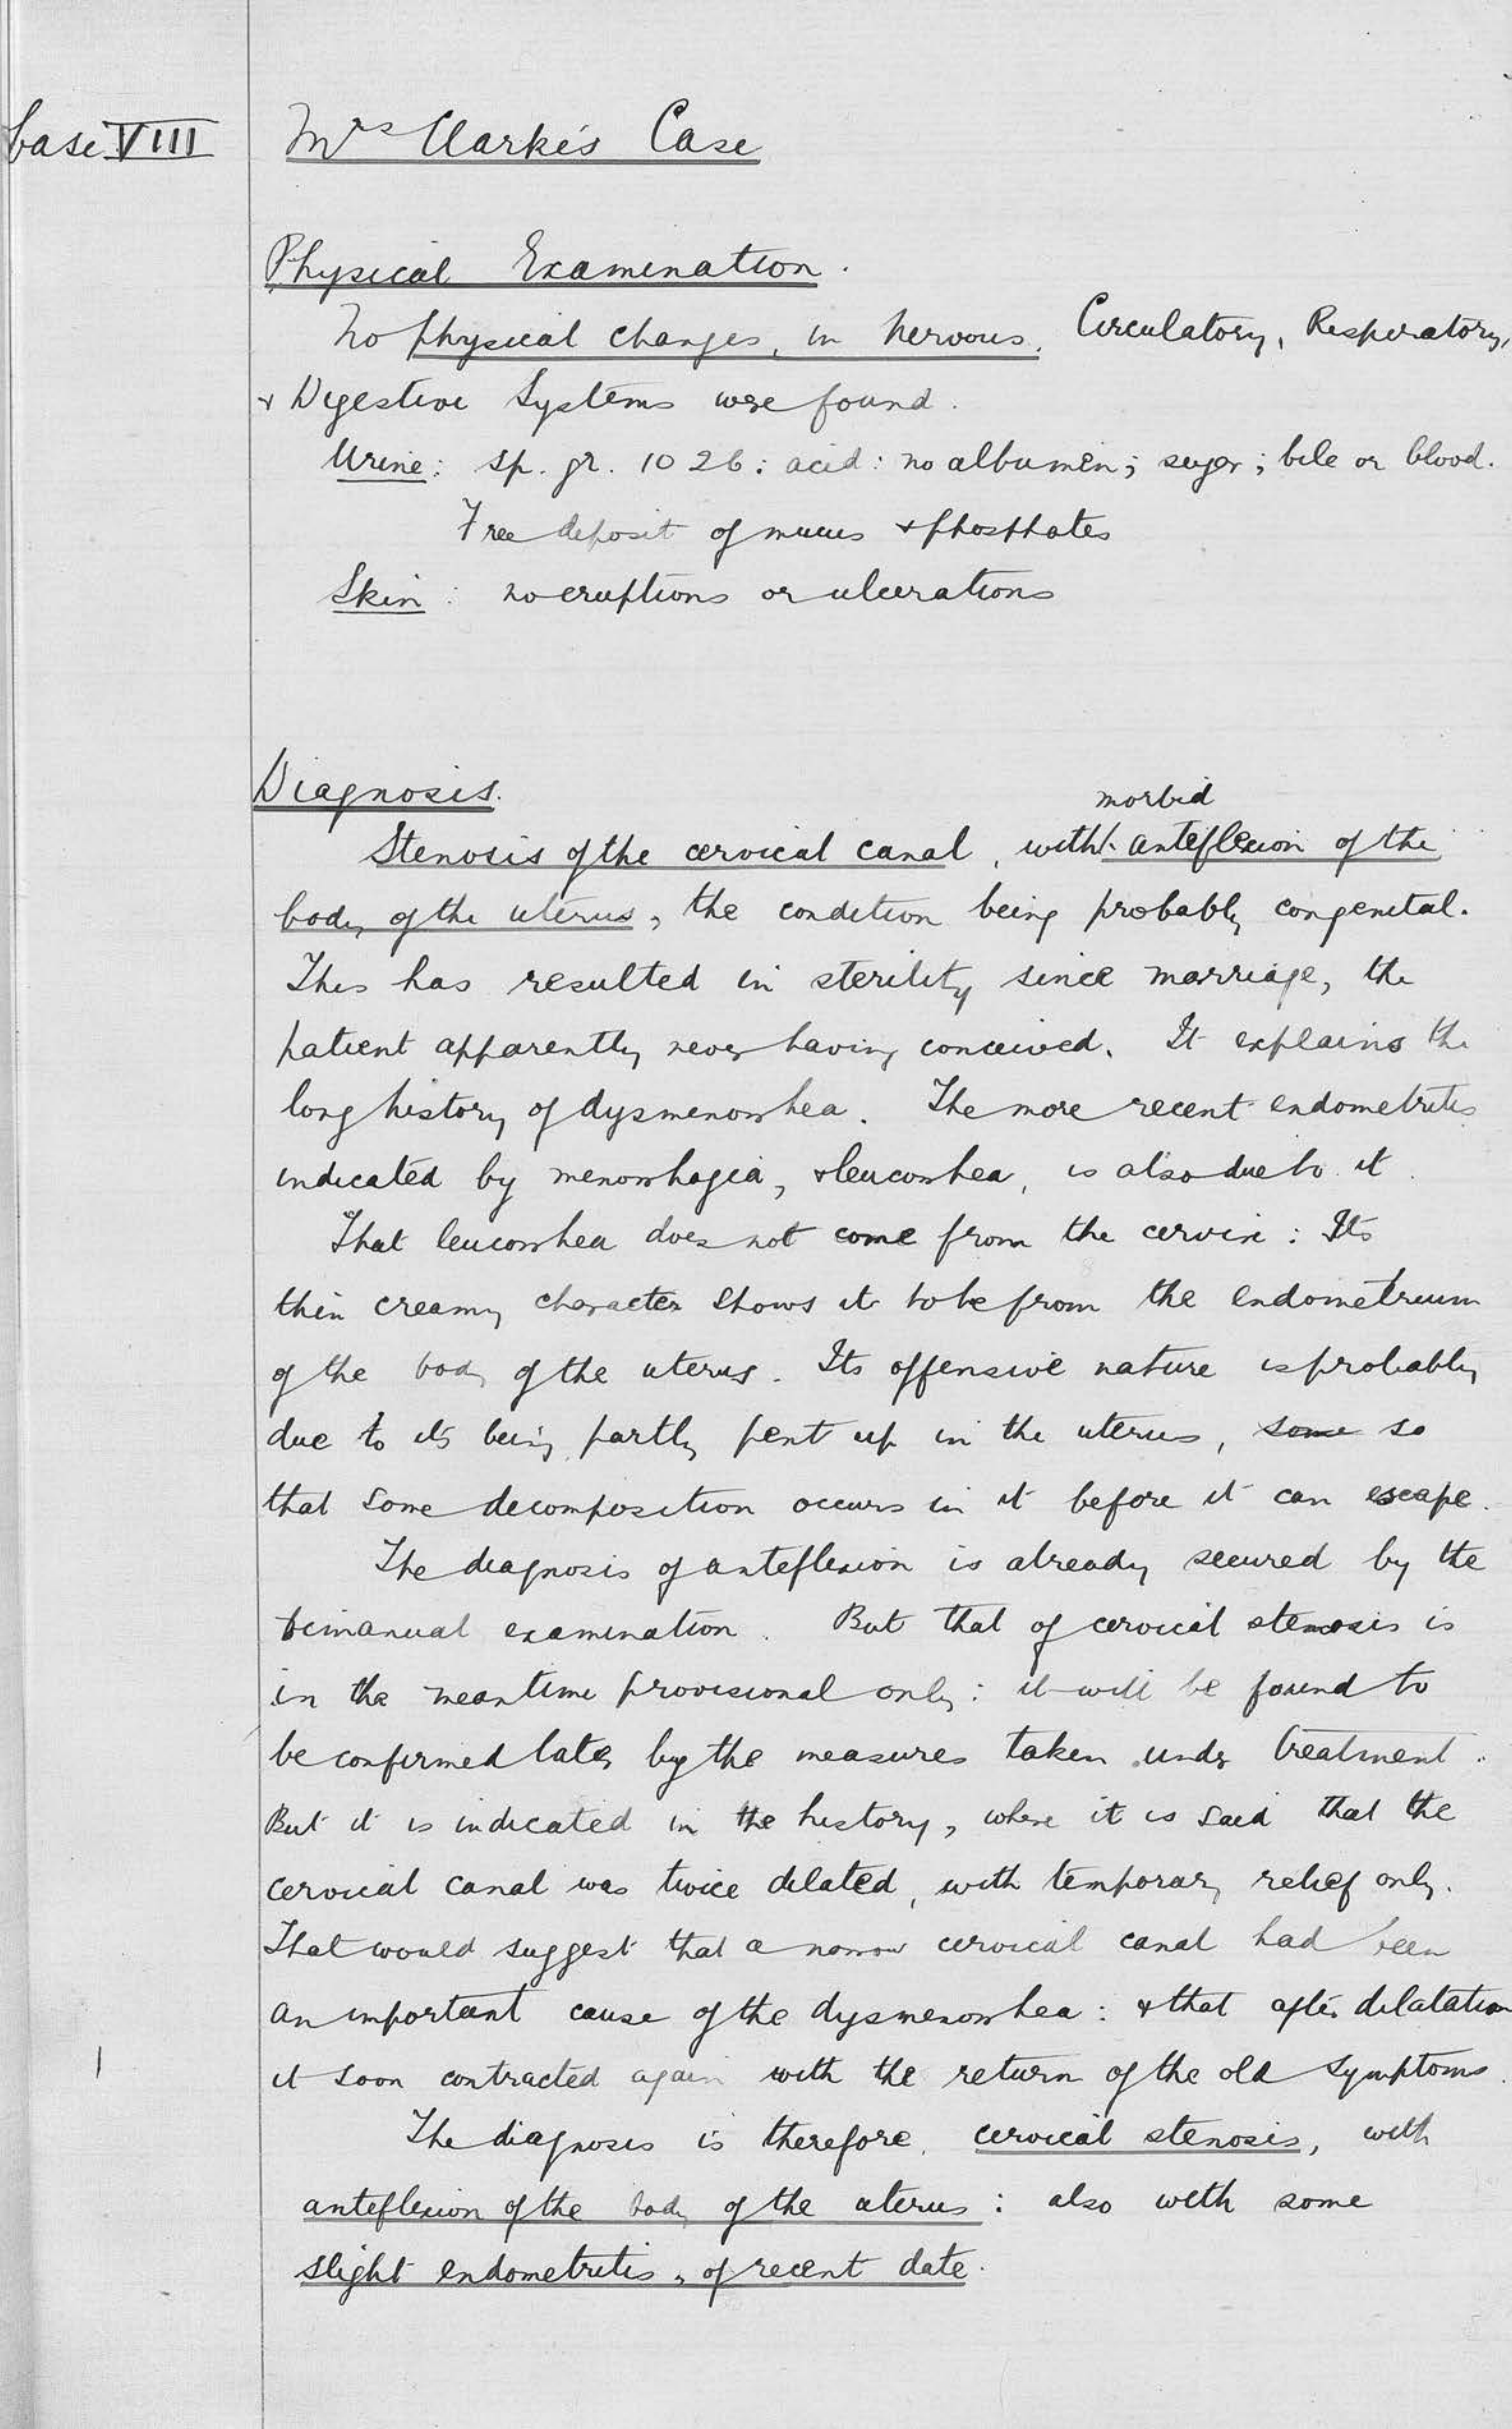 Case VIII
Mrs Clarke's Case
Physical Examination.
No physical changes, in Nervous, Circulatory, Respiratory,
& Digestive Systems were found.
Urine: sp. gr. 1026: acid: no albumen; sugar; bile or blood.
Free deposit of mucus & phosphates
Skin: no eruptions or ulcerations
Diagnosis.
morbid
Stenosis of the cervical canal, with anteflexion of the
body of the uterus, the condition being probably congenital.
This has resulted in sterility since marriage, the
patient apparently never having conceived. It explains the
long history of dysmenorrhea. The more recent endometritis
indicated by menorrhagia, & leucorrhea, is also due to it.
That leucorrhea does not come from the cervix: Its
thin creamy character shows it to be from the endometrium
of the body of the uterus. Its offensive nature is probably
due to its being partly pent up in the uterus, some so
that some decomposition occurs in it before it can escape.
The diagnosis of anteflexion is already secured by the
bimanual examination. But that of cervical stenosis is
in the meantime provisional only: it will be found to
be confirmed later by the measures taken under treatment.
But it is indicated in the history, where it is said that the
cervical canal was twice dilated, with temporary relief only.
That would suggest that a narrow cervical canal had been
an important cause of the dysmenorrhea: & that after dilatation
it soon contracted again with the return of the old symptoms.
The diagnosis is therefore, cervical stenosis, with
anteflexion of the body of the uterus: also with some
slight endometritis, of recent date.